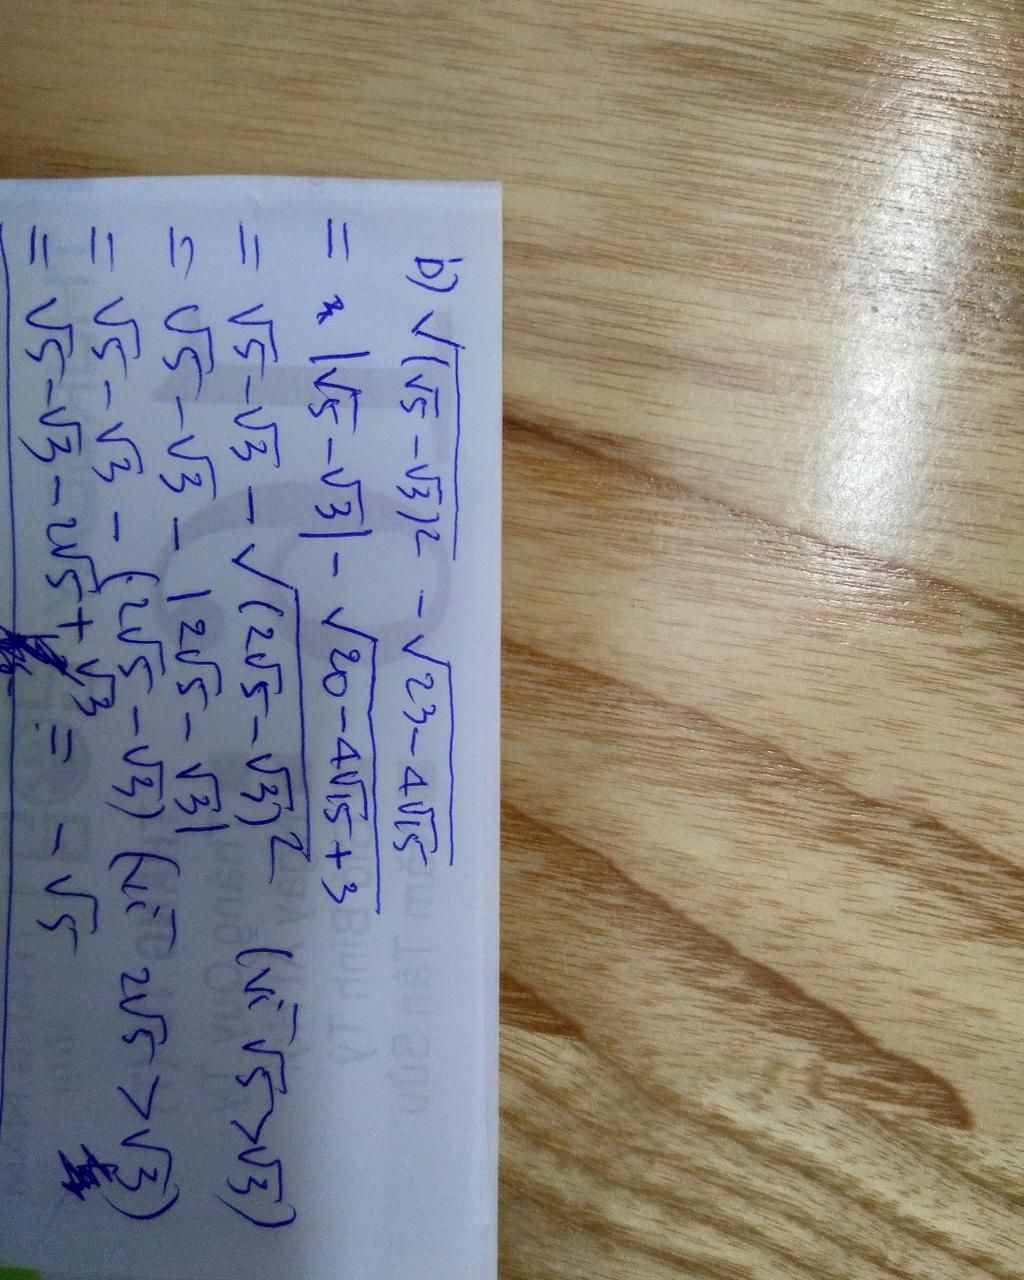 b) √(√5 - √3)² - √23 - 4√15
= |√5 - √3| - √20 - 4√15 + 3
= √5 - √3 - √(2√5 - √3)² (vì √5 > √3)
= √5 - √3 - |2√5 - √3|
= √5 - √3 - (2√5 - √3) (vì 2√5 > √3)
= √5 - √3 - 2√5 + √3 = - √5